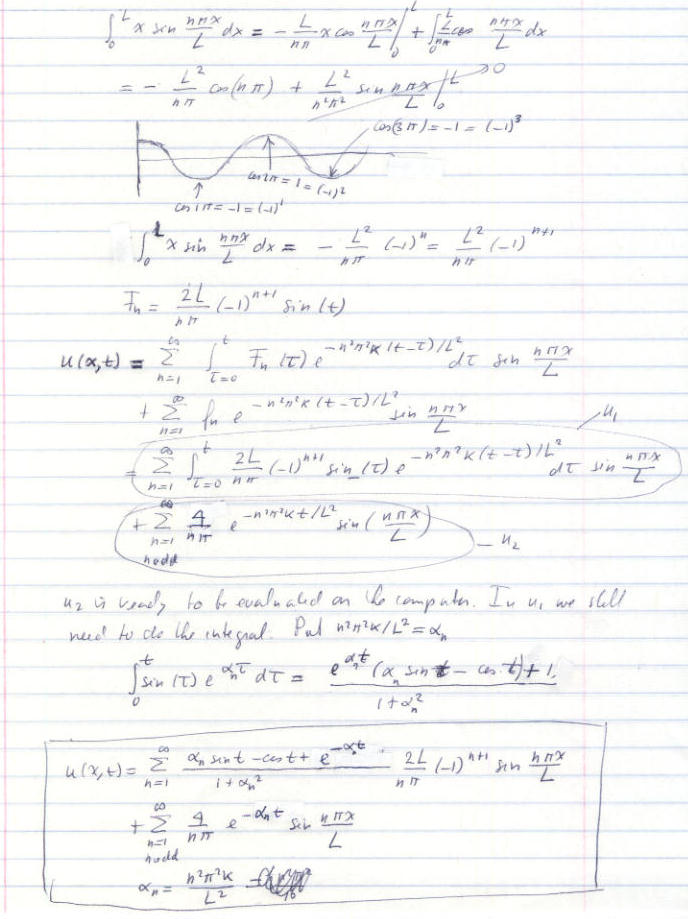 ∫₀ᴸ x sin nπx/L dx = - L/nπ x cos nπx/L |₀ᴸ + ∫₀ᴸ L/nπ cos nπx/L dx
= - L²/nπ cos(nπ) + L²/n²π² sin nπx/L |₀ᴸ → 0
cos(3π) = -1 = (-1)³
cos2π = 1 = (-1)²
cos1π = -1 = (-1)¹
∫₀ᴸ x sin nπx/L dx = - L²/nπ (-1)ⁿ = L²/nπ (-1)ⁿ⁺¹
Fn = 2L/nπ (-1)ⁿ⁺¹ sin(t)
u(x,t) = ∑_{n=1}^∞ ∫_{τ=0}^t Fn(τ) e^{-n²π²κ(t-τ)/L²} dτ sin nπx/L
+ ∑_{n=1}^∞ fn e^{-n²π²κ(t-τ)/L²} sin nπx/L
= ∑_{n=1}^∞ ∫_{τ=0}^t 2L/nπ (-1)ⁿ⁺¹ sin(τ) e^{-n²π²κ(t-τ)/L²} dτ sin nπx/L u₁
+ ∑_{n=1, n odd}^∞ 4/nπ e^{-n²π²κt/L²} sin(nπx/L) u₂
u₂ is ready to be evaluated on the computer. In u₁ we still
need to do the integral. Put n²π²κ/L² = αn
∫₀ᵗ sin(τ) e^{αnτ} dτ = (e^{αnt}(αn sin t - cos t) + 1)/(1+αn²)
u(x,t) = ∑_{n=1}^∞ (αn sin t - cos t + e^{-αnt})/(1+αn²) 2L/nπ (-1)ⁿ⁺¹ sin nπx/L
+ ∑_{n=1, n odd}^∞ 4/nπ e^{-αnt} sin nπx/L
αn = n²π²κ/L²